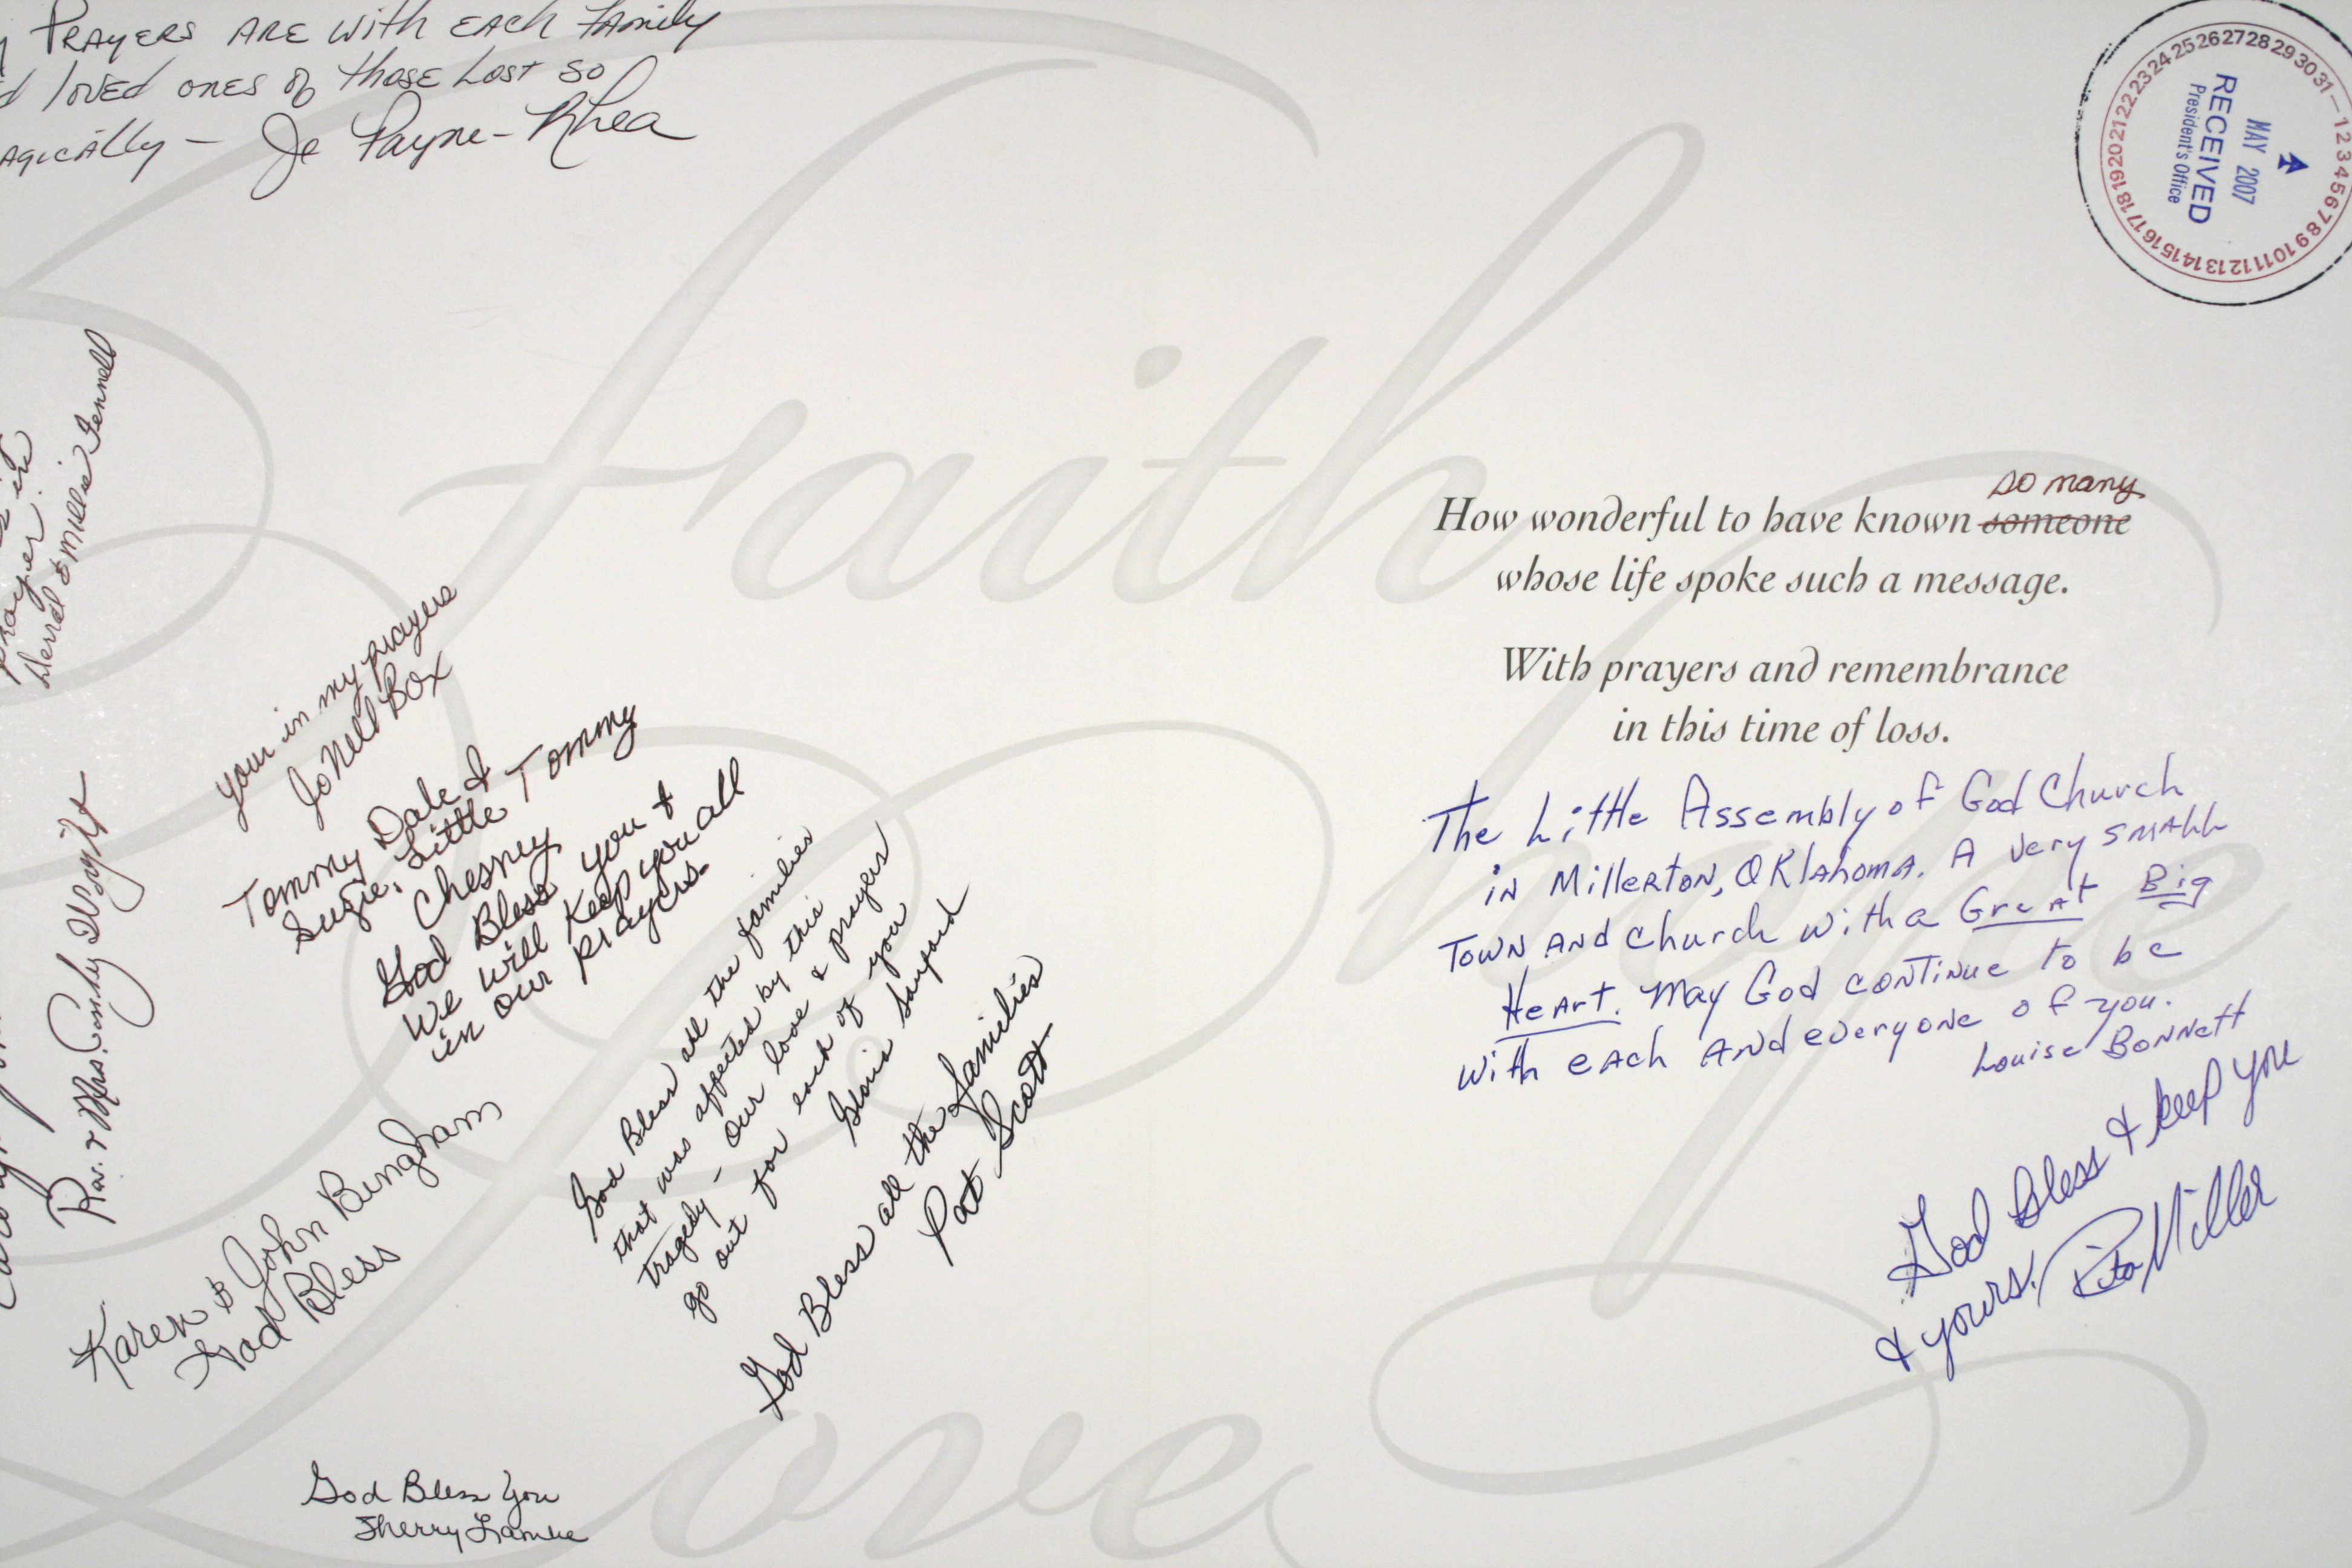 Prayers are with each family
loved ones of those lost so
Je Payne-Rhea
prayer.
Derral & Millie Fennell
your in my prayers
Jo Nell Box
Tommy Dale &
Suzie, Little Tommy
Chesney
God Bless you &
We will Keep you all
in our prayers.
Rev. & Mrs.
Karen & John Bingham
God Bless
God Bless all the families
that was affected by this
tragedy - Our love & prayers
go out for each of you
Gloria
God Bless all the families
Pat Scott
God Bless You
Sherry
Faith
hope
Love
25 26 27 28 29 30 31 - 1 2 3 4 5 6 7 8 9 10 11 12 13 14 15 16 17 18 19 20 21 22 23 24
MAY 2007
RECEIVED
President's Office
so many
How wonderful to have known someone
whose life spoke such a message.
With prayers and remembrance
in this time of loss.
The Little Assembly of God Church
in Millerton, Oklahoma. A very small
Town and church with a Great Big
Heart. May God continue to be
with each and everyone of you.
Louise Bonnett
God Bless & keep you
& yours. Rita Miller